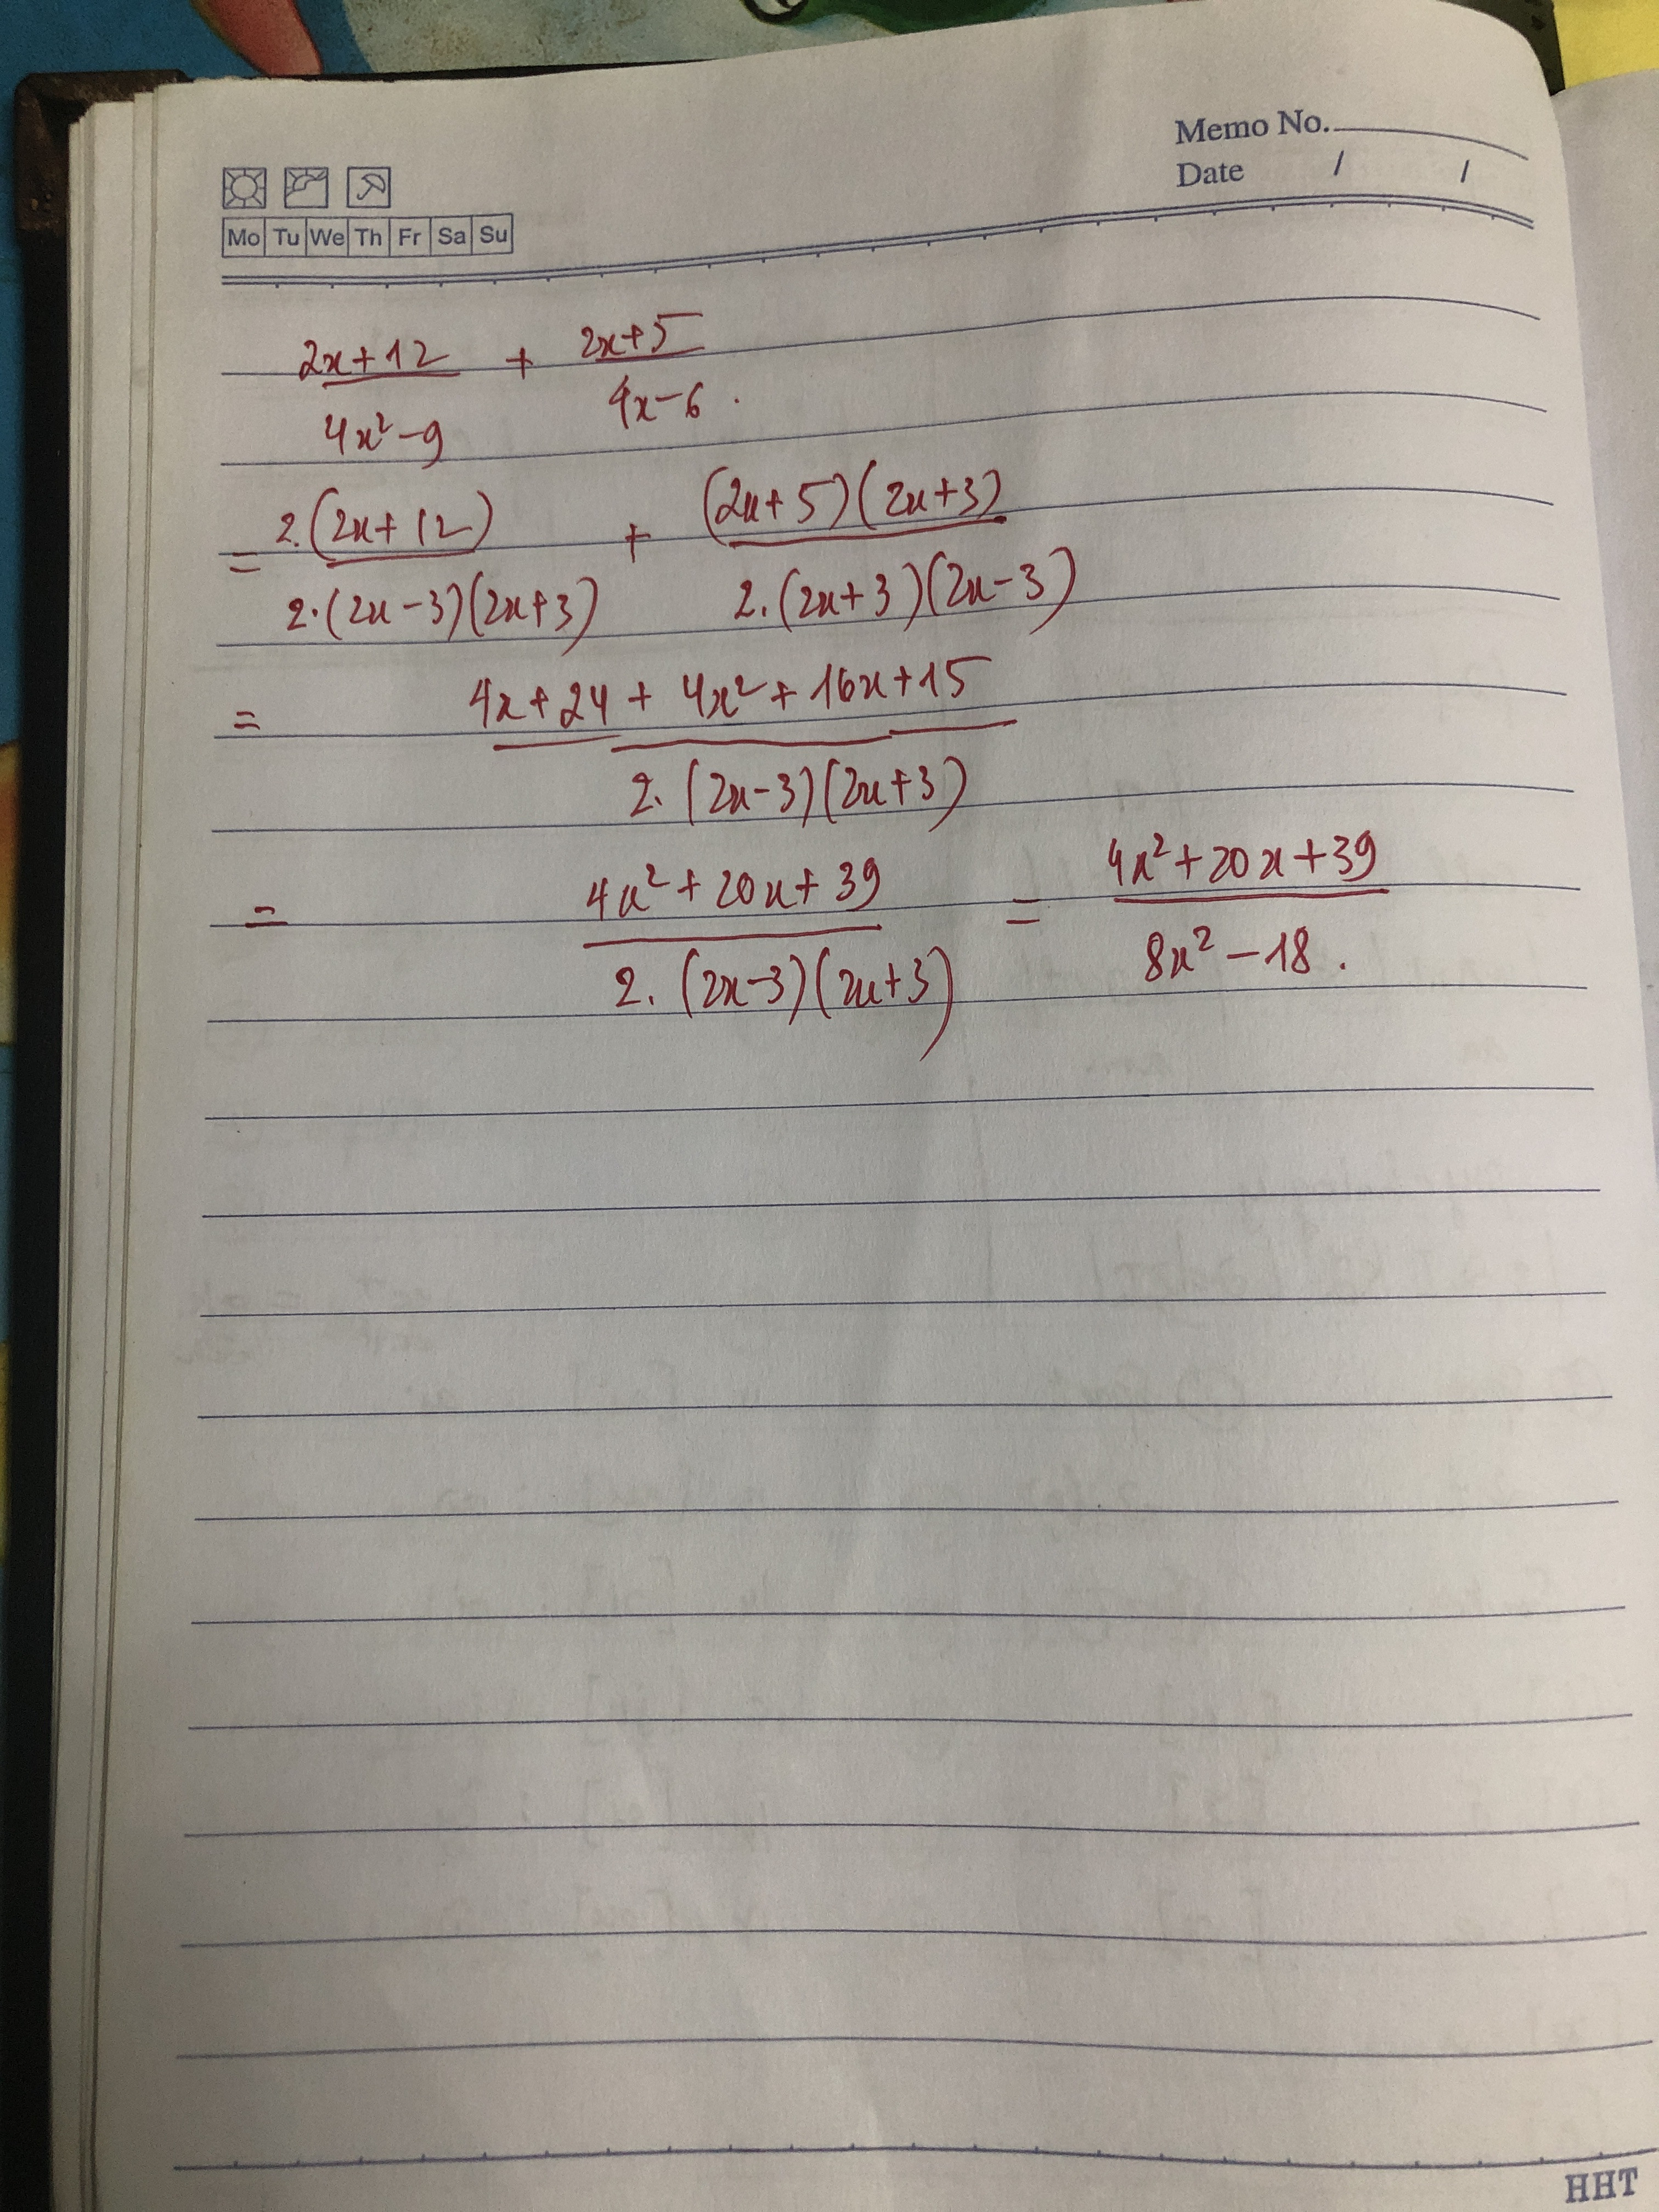 Memo No.
Date / /
Mo Tu We Th Fr Sa Su
(2x+12)/(4x²-9) + (2x+5)/(4x-6) .
= 2.(2x+12)/2.(2x-3)(2x+3) + (2x+5)(2x+3)/2.(2x+3)(2x-3)
= 4x+24 + 4x²+16x+15/2.(2x-3)(2x+3)
= 4x²+20x+39/2.(2x-3)(2x+3) = 4x²+20x+39/8x²-18 .
HHT